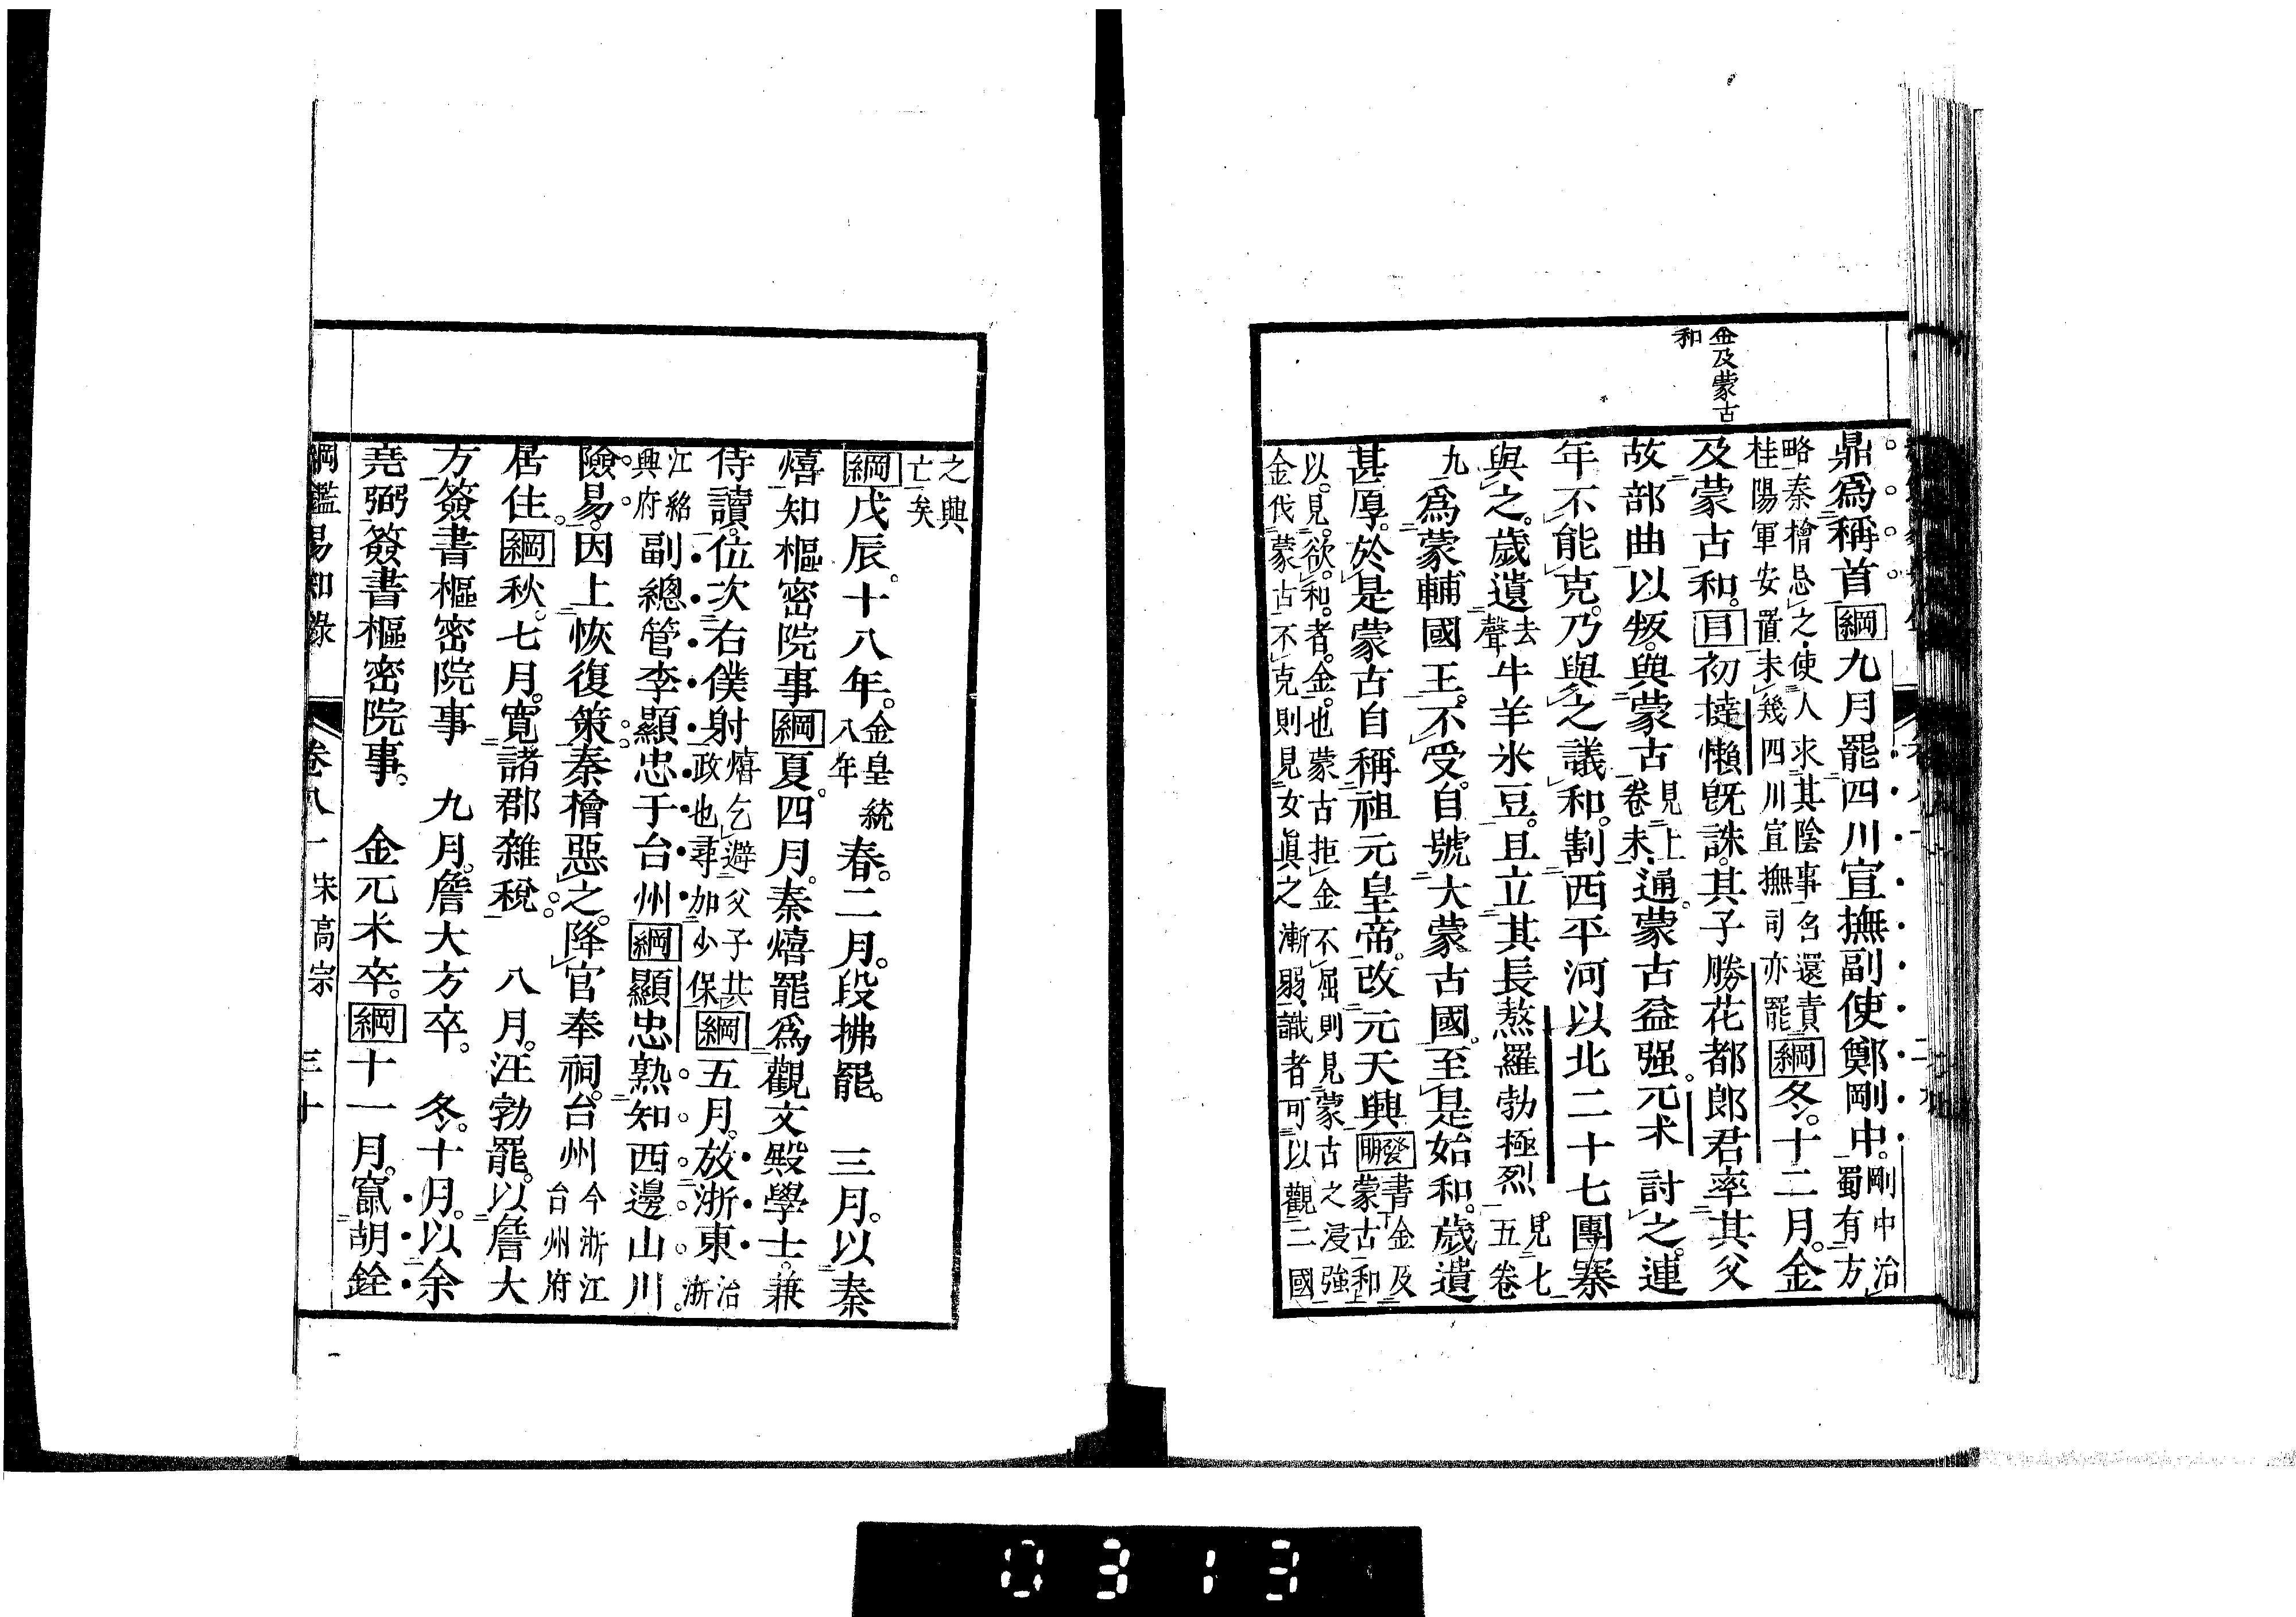 金及蒙古
和
鼎爲稱首綱九月罷四川宣撫副使鄭剛中剛中治蜀有方
略秦檜忌之使人求其陰事名還責桂陽軍安置未幾四川宣撫司亦罷綱冬十二月金
及蒙古和目初撻懶旣誅其子勝花都郎君率其父
故部曲以叛與蒙古見上卷末通蒙古益强兀术討之連
年不能克乃與之議和割西平河以北二十七團寨
與之歲遺去聲牛羊米豆且立其長熬羅勃極烈見七五卷
九爲蒙輔國王不受自號大蒙古國至是始和歲遺
甚厚於是蒙古自稱祖元皇帝改元天興發明書金及蒙古和
以見欲和者金也蒙古拒金不屈則見蒙古之浸強金伐蒙古不克則見女眞之漸弱識者可以觀二國
之興亡矣
綱戊辰十八年金皇統八年春二月段拂罷　三月以秦
熺知樞密院事綱夏四月秦熺罷爲觀文殿學士兼
侍讀位次右僕射熺乞避父子共政也尋加少保綱五月放浙東治浙
江紹興府副總管李顯忠于台州綱顯忠熟知西邊山川
險易因上恢復策秦檜惡之降官奉祠台州今浙江台州府
居住綱秋七月寬諸郡雜稅　八月汪勃罷以詹大
方簽書樞密院事　九月詹大方卒　冬十月以余
堯弼簽書樞密院事　金兀术卒綱十一月竄胡銓
綱鑑易知錄　卷八一　宋高宗　三十
0313